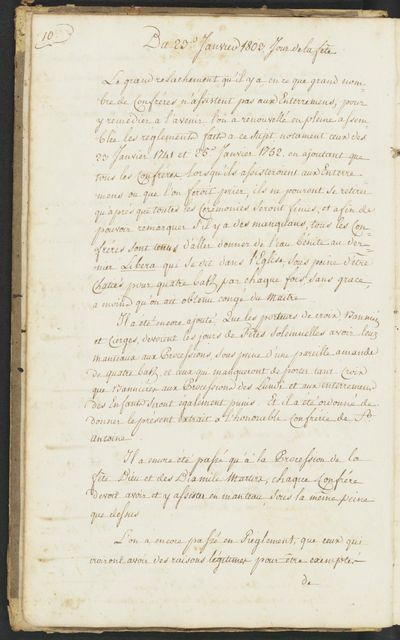 10
Du 23.e Janvier 1803 Jour de la fête
Le grand relachement qu'il y a en ce que grand nom-
bre de Confrères n'assistent pas aux Enterremens, pour
y remedier a l'avenir l'on a renouvellé en pleine assem-
blée les reglements faits a ce sujet notament ceux des
23 Janvier 1741 et 25.e Janvier 1752, en ajoutant que
tous les Confreres lorsqu'ils assisteront aux Enterre
mens ou que l'on feroit prier, ils ne pouront se retirer
qu'après que toutes les Ceremonies seront finies, et afin de
pouvoir remarquer s'il y a des manquans, tous les Con
fréres sont tenus d'aller donner de l'eau bénite au der-
nier Libera qui se dit dans l'Eglise, sous peine d'être
Chatiés pour quatre batz par chaque fois, sans grace,
a moins qu'on ait obtenu congé du Maitre
Il a été encore ajouté Que les porteurs de croix Bannier
et Cierges, devront les jours de Fêtes Solemnelles avoir leur
manteaux aux Processions, sous peine d'une pareille amande
de quatre batz, et ceux qui manqueront de porter tant Croix
que Bannieres aux Processions des Lundi et aux enterremens
des Enfants seront également punis. Et il a été ordonné de
donner le présent extrait a l'honorable Confrérie de St
Antoine.
Il a encore eté passé qu'à la Procession de la
fête Dieu et des Dix mille Martirs, chaque Confrére
devoit avoir et y assister en manteau, sous la même peine
que dessus
L'on a encore passé en Règlement, que ceux qui
croiront avoir des raisons légitimes pour être exempté
de